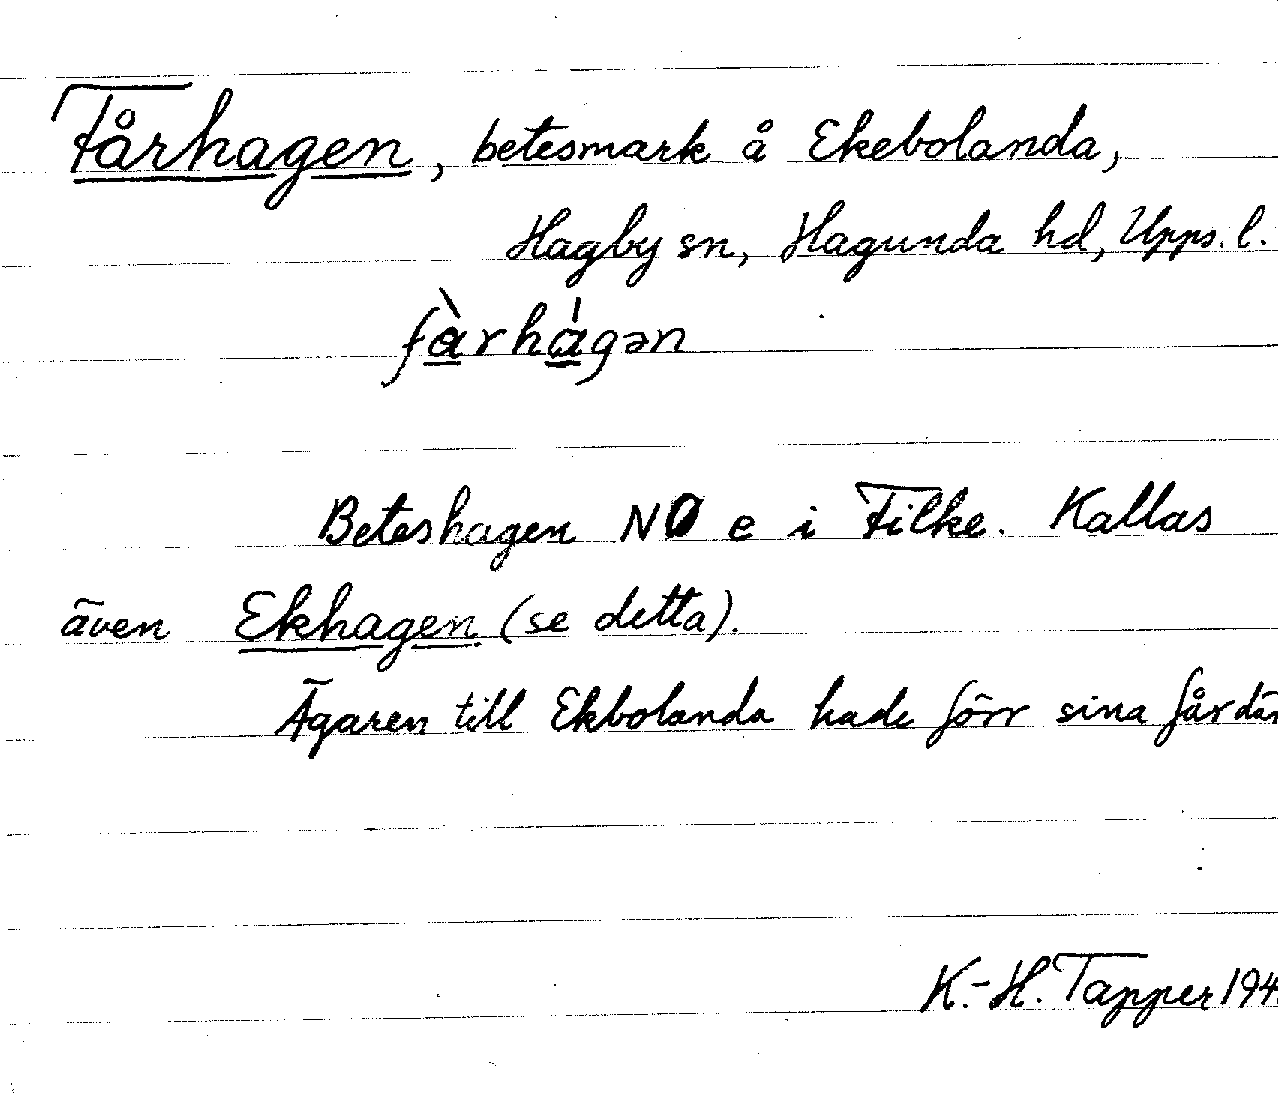 Fårhagen, betesmark å Ekebolanda,
Hagby sn, Hagunda hd, Upps. l.
fà̲rhá̲gən
Beteshagen NO e i Filke. Kallas
även Ekhagen (se detta).
Ägaren till Ekbolanda hade förr sina får där
K.-H. Tapper 194